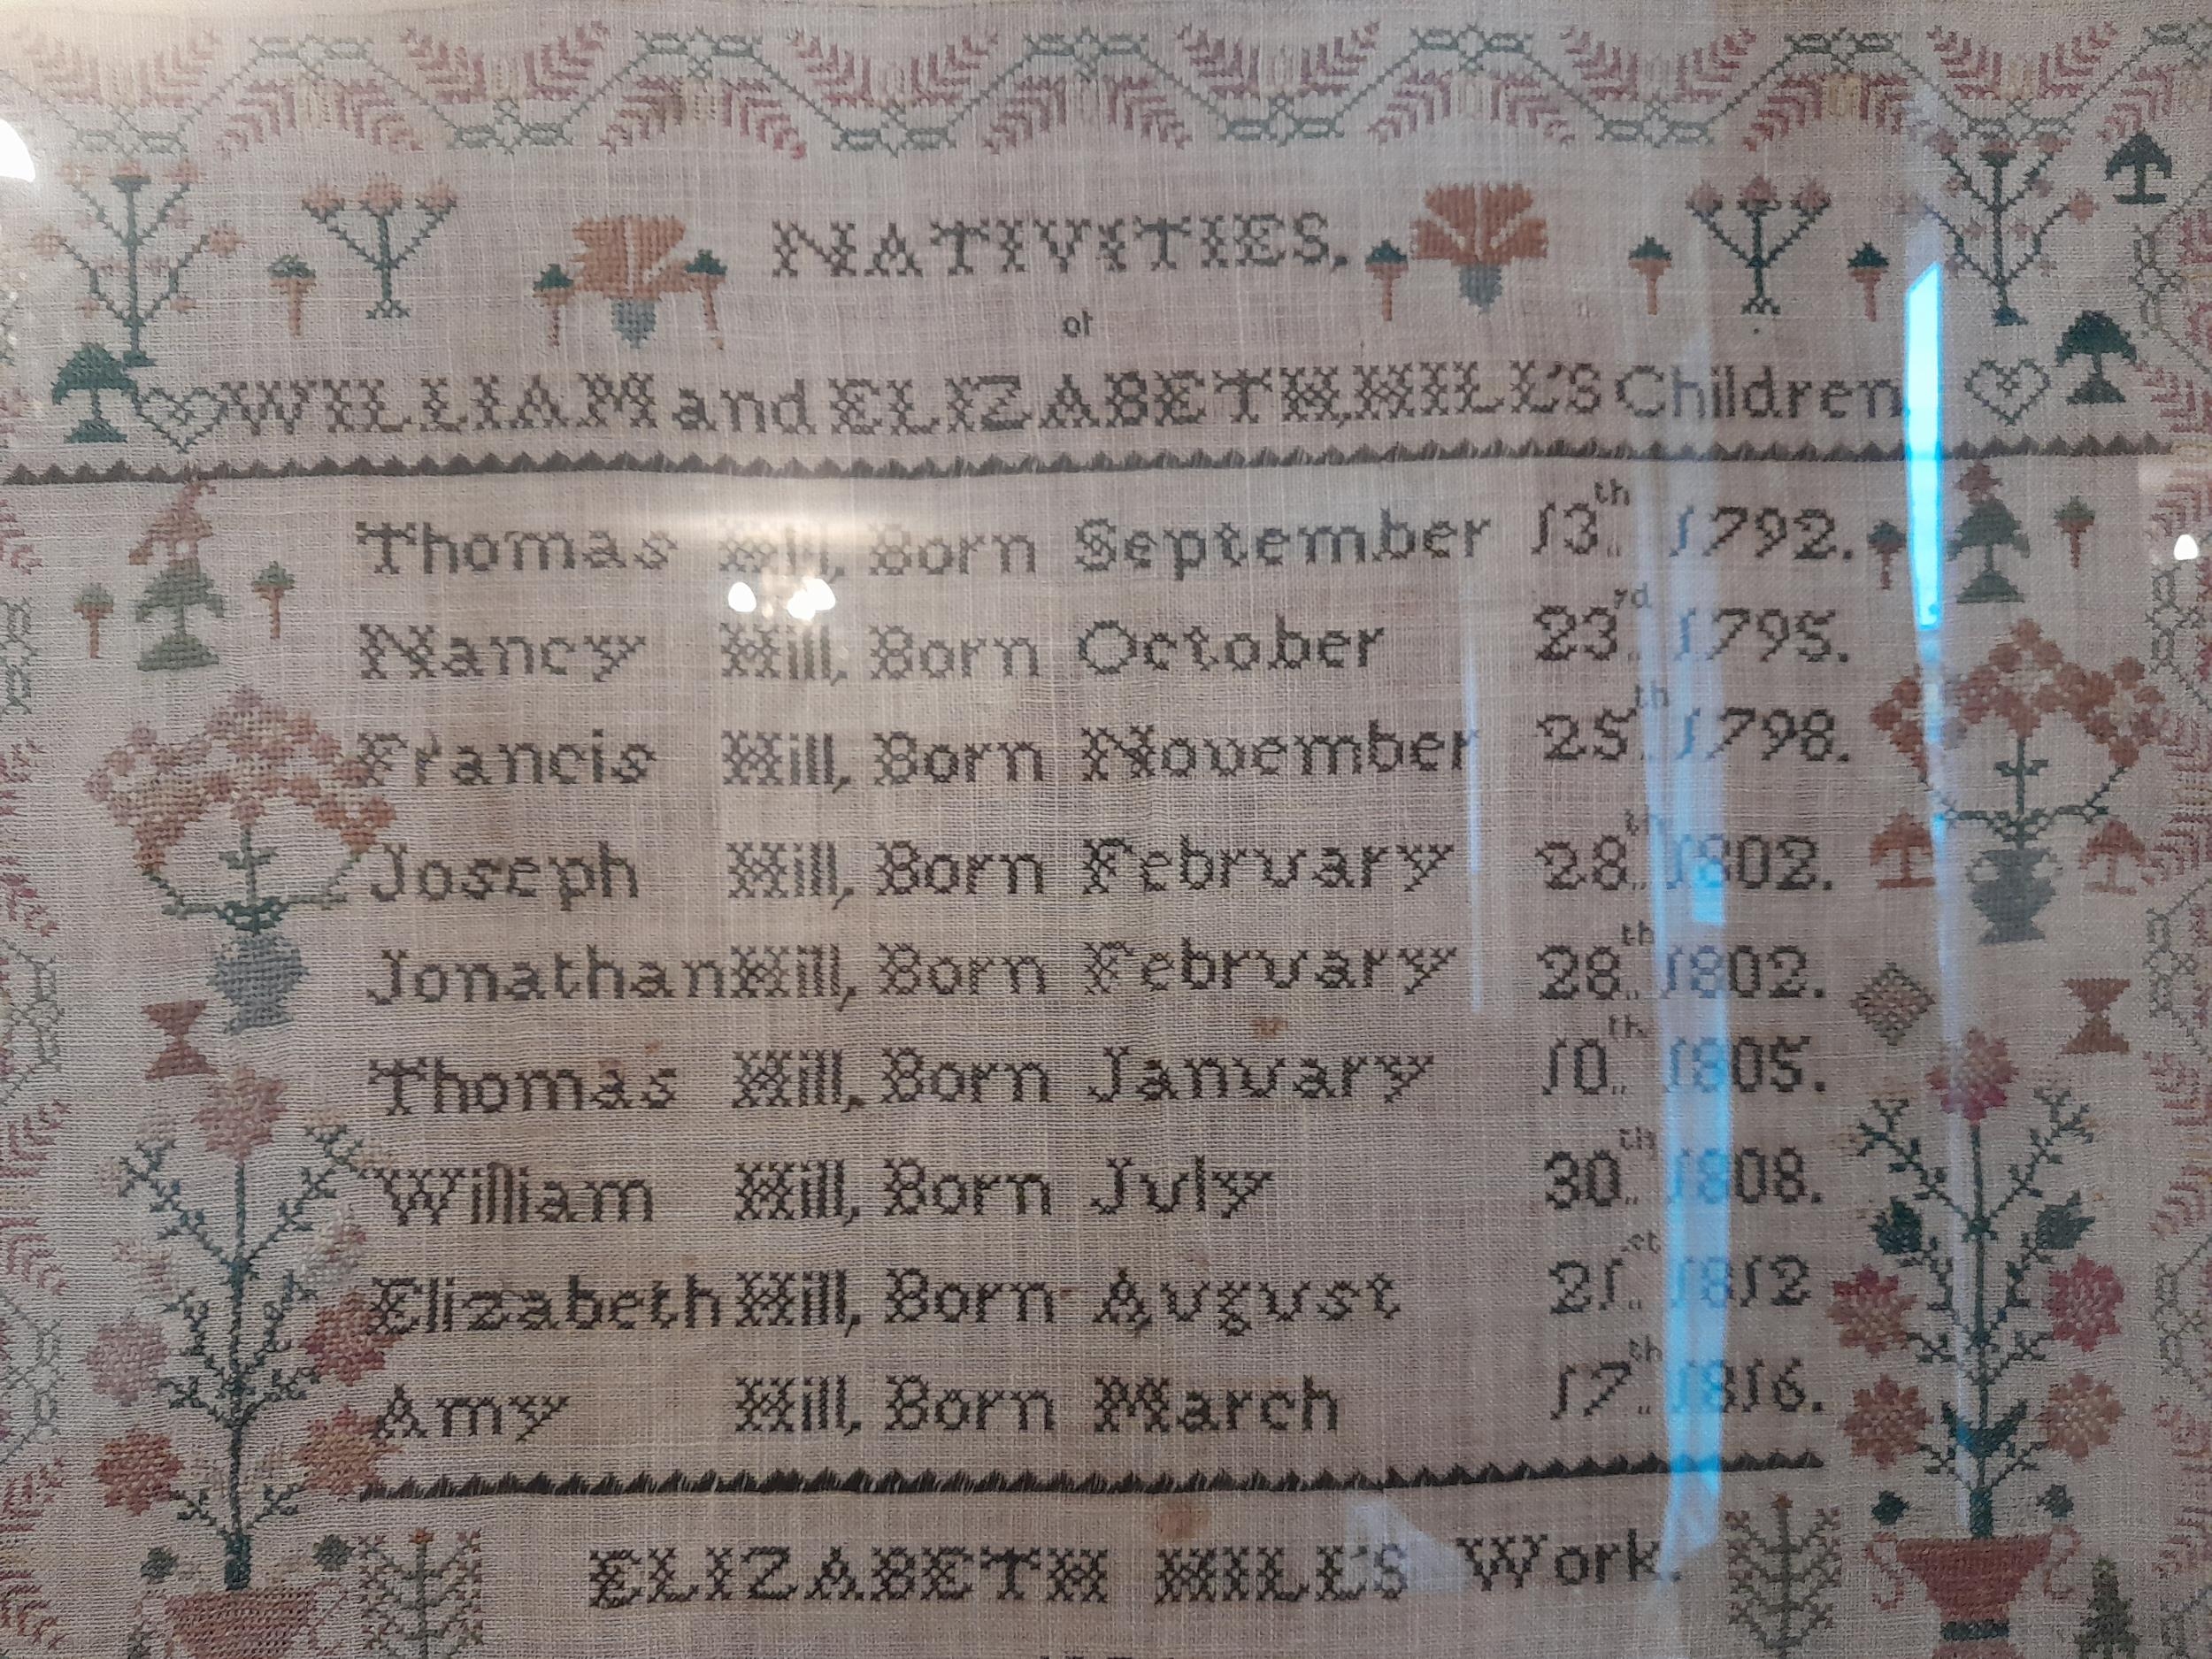 NATIVITIES,
of
WILLIAM and ELIZABETH, HILL'S Children
Thomas Hill, Born September 13th 1792.
Nancy Hill, Born October 23rd 1795.
Francis Hill, Born November 25th 1798.
Joseph Hill, Born February 28th 1802.
Jonathan Hill, Born February 28th 1802.
Thomas Hill, Born January 10th 1805.
William Hill, Born July 30th 1808.
Elizabeth Hill, Born August 21st 1812
Amy Hill, Born March 17th 1816.
ELIZABETH HILL'S Work.